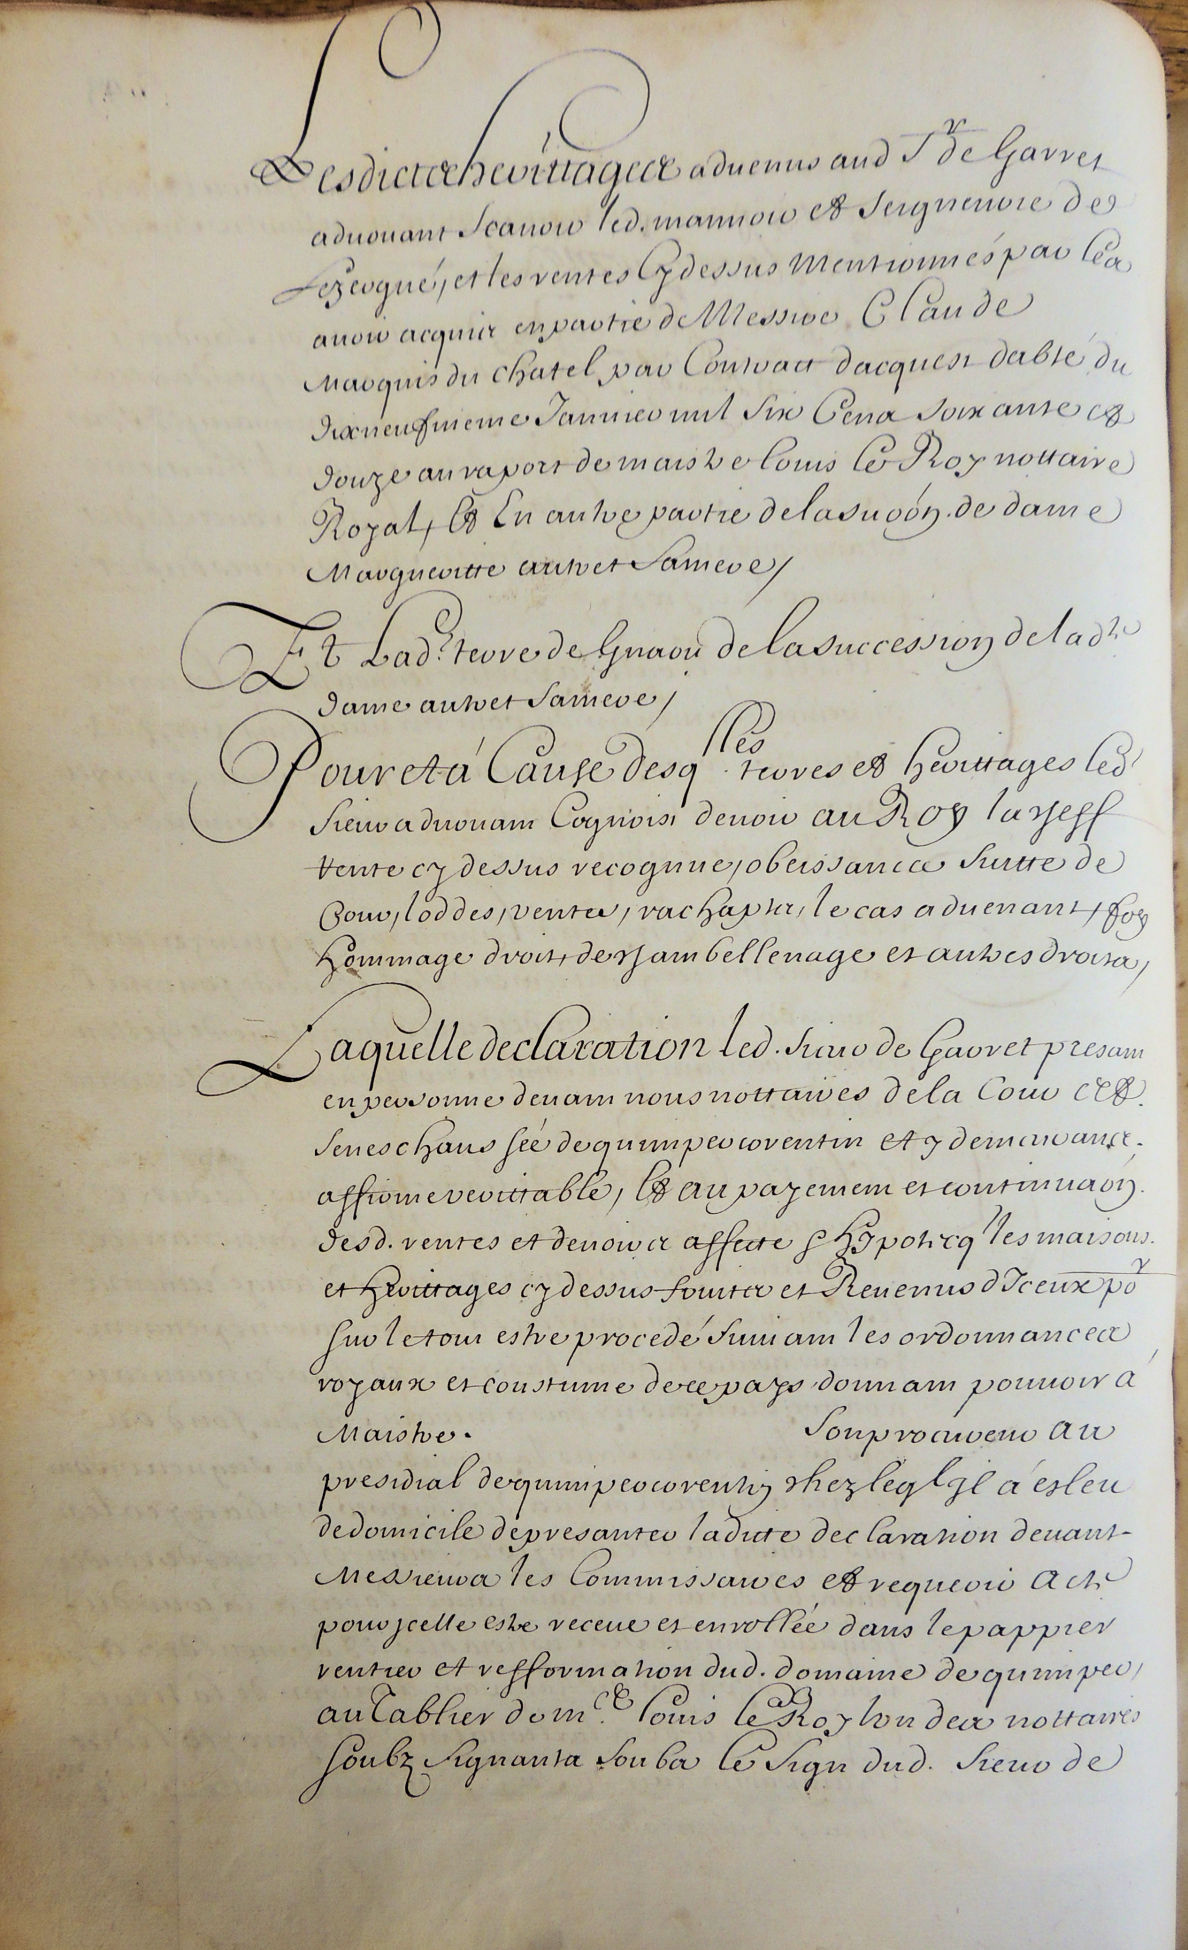 Lesdictes heritages aduenus aud Sr de Garret
aduouant scauoir led. mannoir et seigneurie de
et les rentes cy dessus mentionnés par les
auoir acquis en partie de Messire Claude
Marquis du chatel par Contract dacquest dabté du
dixneufuieme Januier mil six Cens soixante et
douze au raport de maistre Louis Le Roy nottaire
Royal, et En autre partie de la suσon. de dame
Margueritte autret sa mere /
Et Lad.e terre de de la succession de lad.te
dame autret sa mere /
Pour et á Cause desqlles terres et heritages led
Sieur aduouant Cognoist deuoir au Roy la cheff
rente cy dessus recognue, obeissance suitte de
Cour, lod des, ventes, rachapts, le cas aduenant, foy
hommage droit, de chambellenage et autres droits,
Laquelle declaration led. sieur de Garret presant
en personne deuant nous nottaires de la Cour et
seneschaussée de quimpercorentin et y demeurants.
affirme veritable, Et au payement et continuaon.
desd. rentes et deuoirs affecte & hypotecq les maisons.
et heritages cy dessus fruits et Reuenus d'Iceux por
sur le tout estre procedé suiuant les ordonnances
royaux et coustume de ce pays donnant pouuoir á
Maistre. son procureur au
presidial de quimpercorentin chez leql Il á esleu
de domicile de presanter ladicte declaration deuant
Messieurs les Commissaires et requerir acte
pour icelle estre receue et enrollée dans le pappier
rentier et refformation dud. domaine de quimper,
au Tablier de m.e Louis Le Roy lun des nottaires
soubz signants soubs le sign dud. sieur de